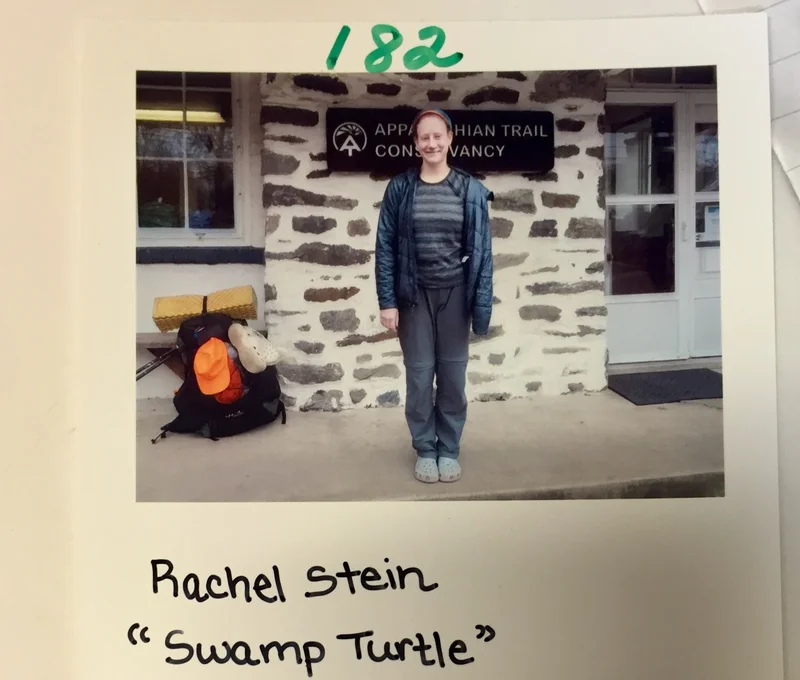 182
APPA HIAN TRAIL
CONS VANCY
Rachel Stein
"Swamp Turtle"